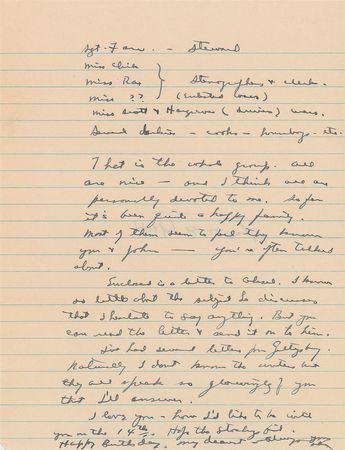 Sgt. Farr. - Steward
Miss Chick
Miss Rae } Stenographers & clerks.
Miss ?? (enlisted wacs)
Miss Scott & Hargrave (drivers) wacs.
Several darkies - cooks - houseboys - etc.
That is the whole group. All
are nice - and I think all are
personally devoted to me. So far
it's been quite a happy family.
Most of them seem to feel they know
you & John - you're often talked
about.
Enclosed is a letter to Abeel. I know
so little about the subject he discusses
that I hesitate to say anything. But you
can read the letter & send it on to him.
I've had several letters from Gettysburg.
Naturally I don't know the writers but
they all speak so glowingly of you
that I'll answer.
I love you - how I'd like to be with
you on the 14th. Hope the
Happy Birthday, my dearest - always